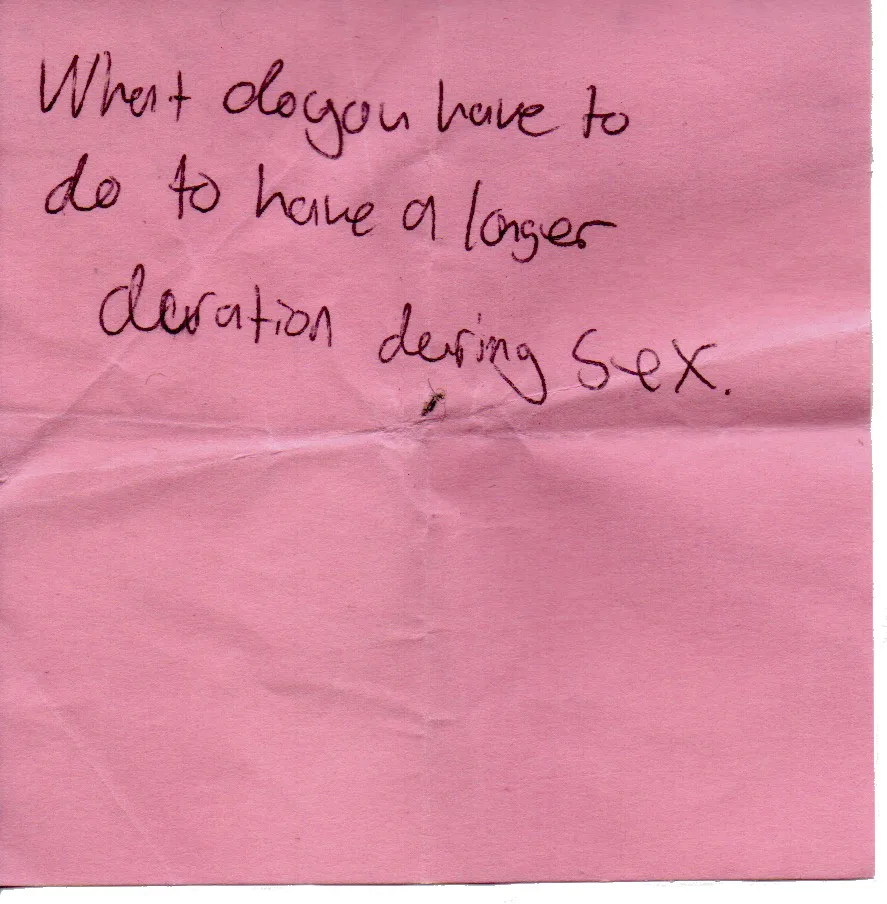 What do you have to
do to have a longer
duration during sex.